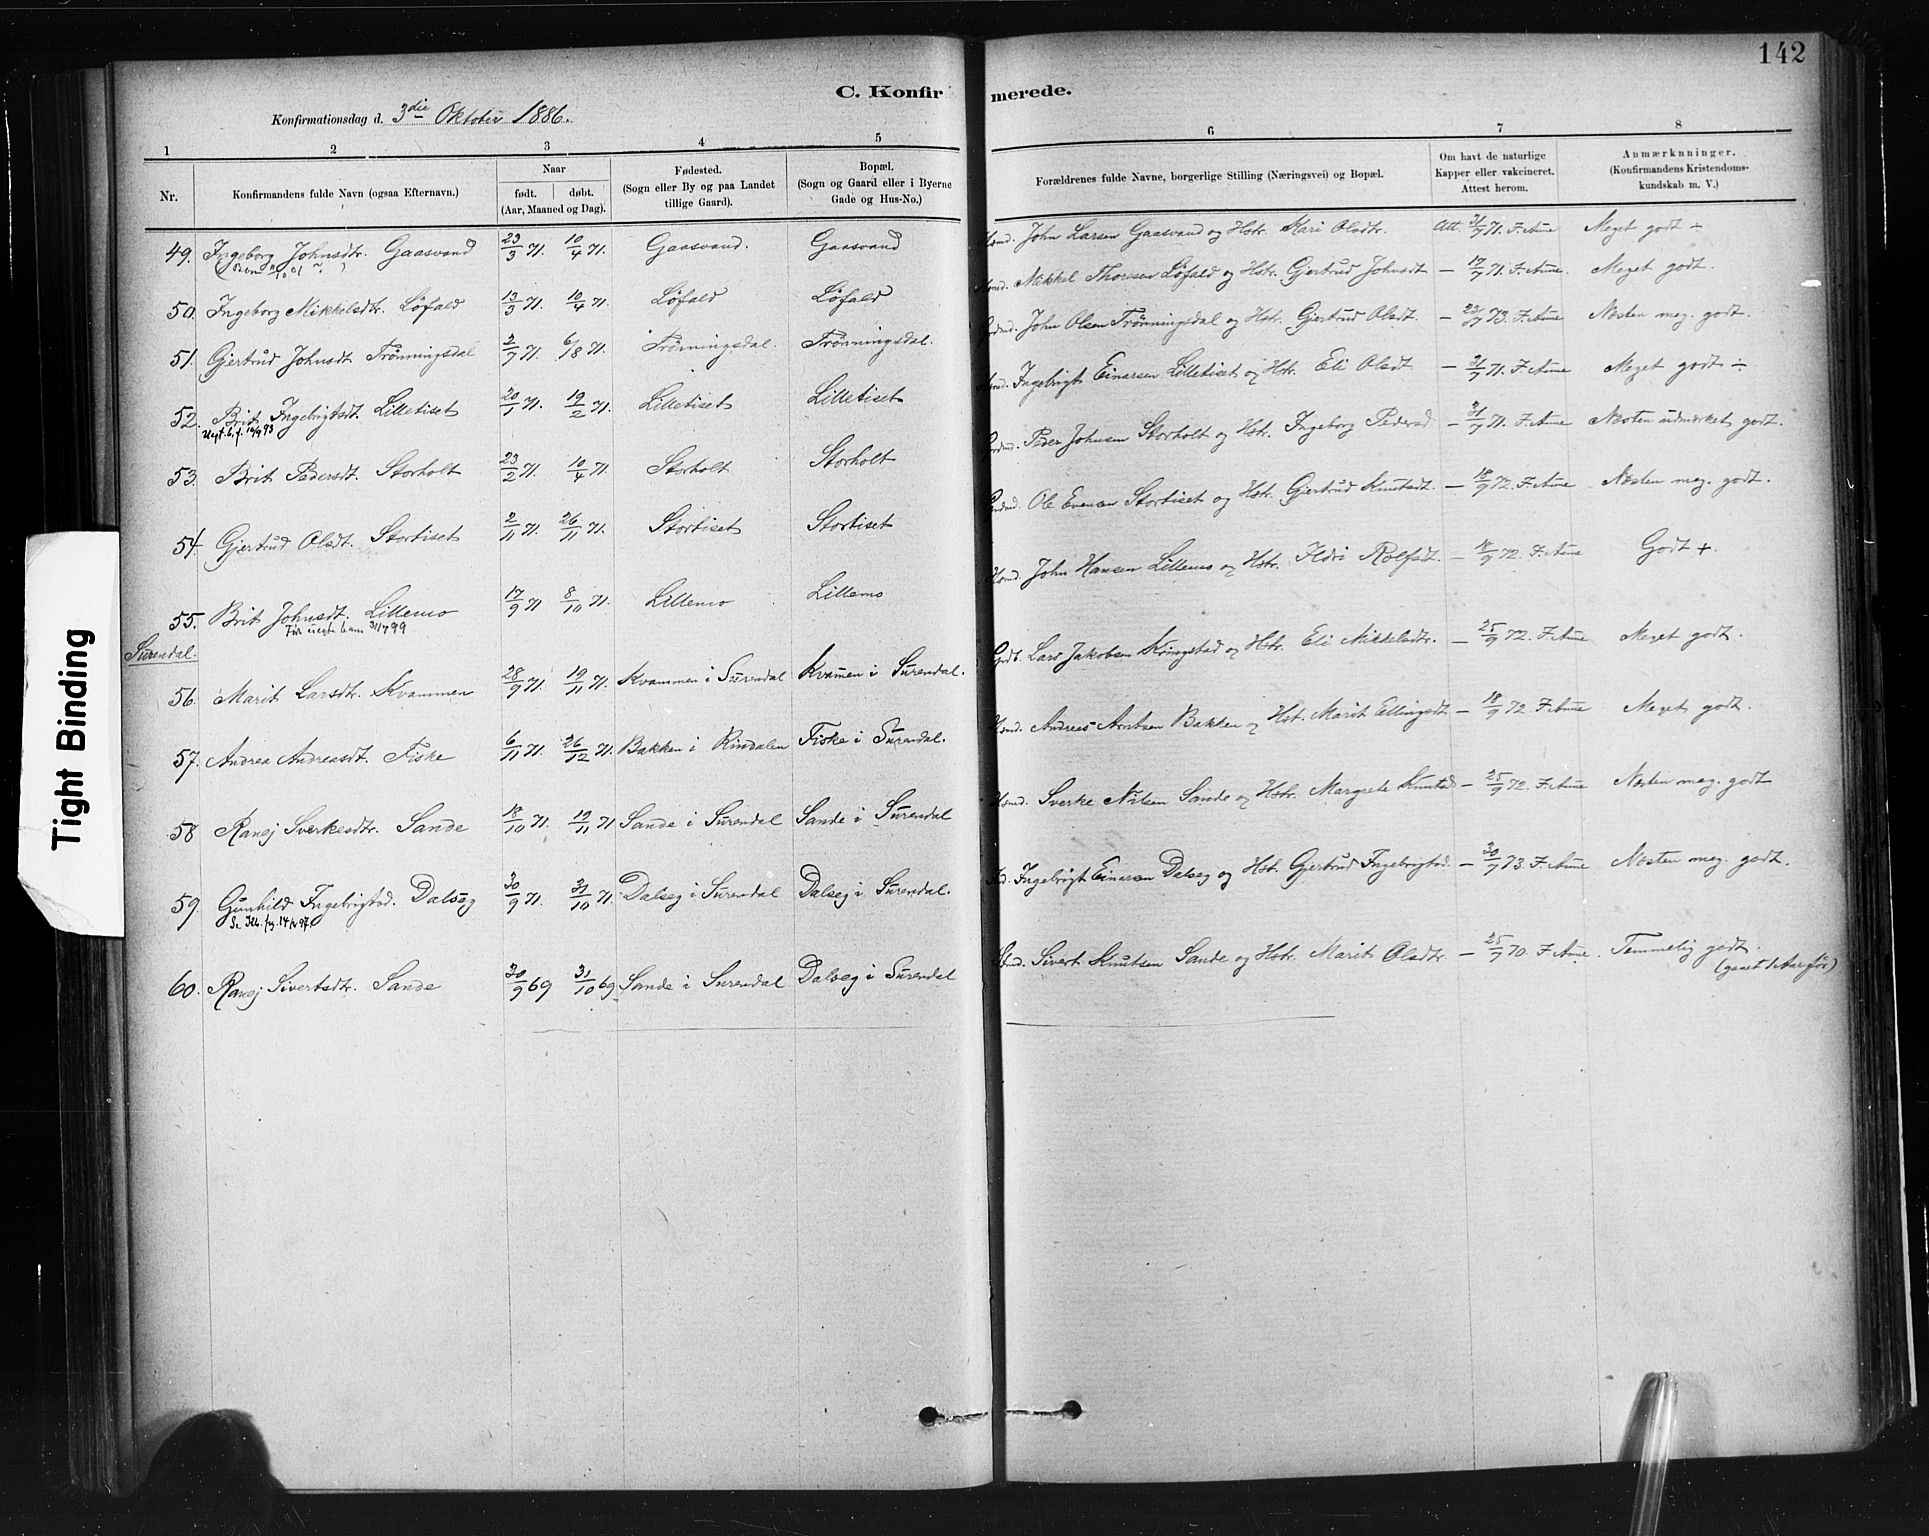 142
C. Konfirmerede.
Konfirmationsdag d. 3die Oktober 1886.
1 2 3 4 5 6 7 8
Nr. Konfirmandens fulde Navn (ogsaa Efternavn.) Naar født. døbt. (Aar, Maaned og Dag). Fødested. (Sogn eller By og paa Landet tillige Gaard). Bopæl. (Sogn og Gaard eller i Byerne Gade og Hus-No.) Forældrenes fulde Navne, borgerlige Stilling (Næringsvei) og Bopæl. Om havt de naturlige Kapper eller vakcineret. Attest herom. Anmærknninger. (Konfirmandens Kristendomskundskab m. V.)
49. Ingeborg Johnsdtr. Gaasvand 23/3 71. 10/4 71. Gaasvand. Gaasvand John Larsen Gaasvand og Hstr. Kari Olsdtr. Att. 31/7 71. F. Aune Meget godt ÷
50. Ingeborg Mikkelsdtr. Løfald 13/3 71. 10/4 71. Løfald Løfald Mikkel Thoresen Løfald og Hstr. Gjertrud Johnsdt – 17/7 71. F. Aune. Meget godt.
51. Gjertrud Johnsdt. Trønningsdal 2/7 71. 6/8 71. Trønningsdal. Trønningsdal. John Olsen Trønningsdal og Hstr. Gjertrud Olsdt. – 23/7 73. F. Aune Næsten meg. godt.
52. Brit Ingebrigtsdt. Lilletiset 20/1 71. 19/2 71. Lilletiset Lilletiset Ingebrigt Einarsen Lilletiset og Hstr. Eli Olsdt. – 31/7 71. F. Aune Meget godt ÷
53. Brit Pedersdt. Storholt 23/2 71. 10/4 71. Storholt Storholt Peder Johnsen Storholt og Hstr. Ingeborg Pedersd. – 31/7 71. F. Aune Næsten udmærket godt.
54. Gjertrud Olsdt. Stortiset 2/11 71. 26/11 71. Stortiset Stortiset Ole Evensen Stortiset og Hstr. Gjertrud Knutsdt. – 18/9 72. F. Aune Næsten meg. godt.
55. Brit Johnsdt. Lillemo 17/9 71 8/10 71. Lillemo Lillemo John Hansen Lillemo og Hstr. Ildri Rolfsdt. – 18/9 72. F. Aune Godt +.
Surendal.
56. Marit Larsdtr. Kvammen 28/9 71. 19/11 71. Kvammen i Surendal Kvamen i Surendal. Lars Jakobsen Kringstad og Hstr. Eli Mikkelsdtr. – 25/9 72. F. Aune Meget godt.
57. Andrea Andreasdt. Fiske 6/11 71. 26/12 71. Bakken i Rindalen Fiske i Surendal. Andreas Arntsen Bakken og Hst. Marit Ellingsdt – 18/9 72. F. Aune Meget godt.
58 Ranej Sverkesdtr. Sande 18/10 71. 19/11 71 Sande i Surendal Sande i Surendal Sverke Nilsen Sande og Hstr. Margrete Knutsd – 25/9 72. F. Aune Næsten meg. godt
59. Gunhild Ingebrigtsd. Dalseg 30/9 71. 31/10 71. Dalseg i Surendal Dalseg i Surendal. Ingebrigt Einarsen Dalseg og Hst. Gjertrud Ingebrigtsd. – 30/7 73. F. Aune Næsten meg. godt.
60. Ranej Sivertsdtr. Sande 30/9 69 31/10 69 Sande i Surendal Dalseg i Surendal Sivert Knutsen Sande og Hstr. Marit Olsdtr. – 25/9 70. F. Aune. Temmelig godt.
Tight Binding